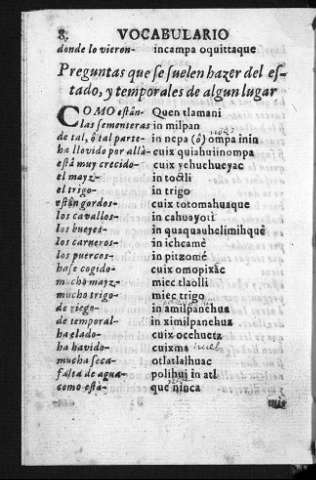 8. VOCABULARIO
donde lo vieron- incampa oquittaque
Preguntas que se suelen hazer del es-
tado, y temporales de algun lugar
COMO estân- Quen tlamani
las sementeras in milpan
de tal, ô tal parte- in nepa (ô) ompa inin
ha llovido por allà- cuix quiahuiinompa
està muy crecido- cuix yehuehueyac
el mayz- in toctli
el trigo- in trigo
estân gordos- cuix totomahuaque
los cavallos- in cahuayotì
los bueyes- in quaquauhelimihquê
los carneros- in ichcamê
los puercos- in pitzomê
hase cogido- cuix omopixâc
mucho mayz- miec tlaolli
mucho trigo- miec trigo
de riego- in amilpanchua
de temporal- in ximilpanchua
ha elado- cuix occhuetz
ha havido- cuixma
mucha seca- otlatlalhuac
falta de agua- polihui in atl
como està- que ninca